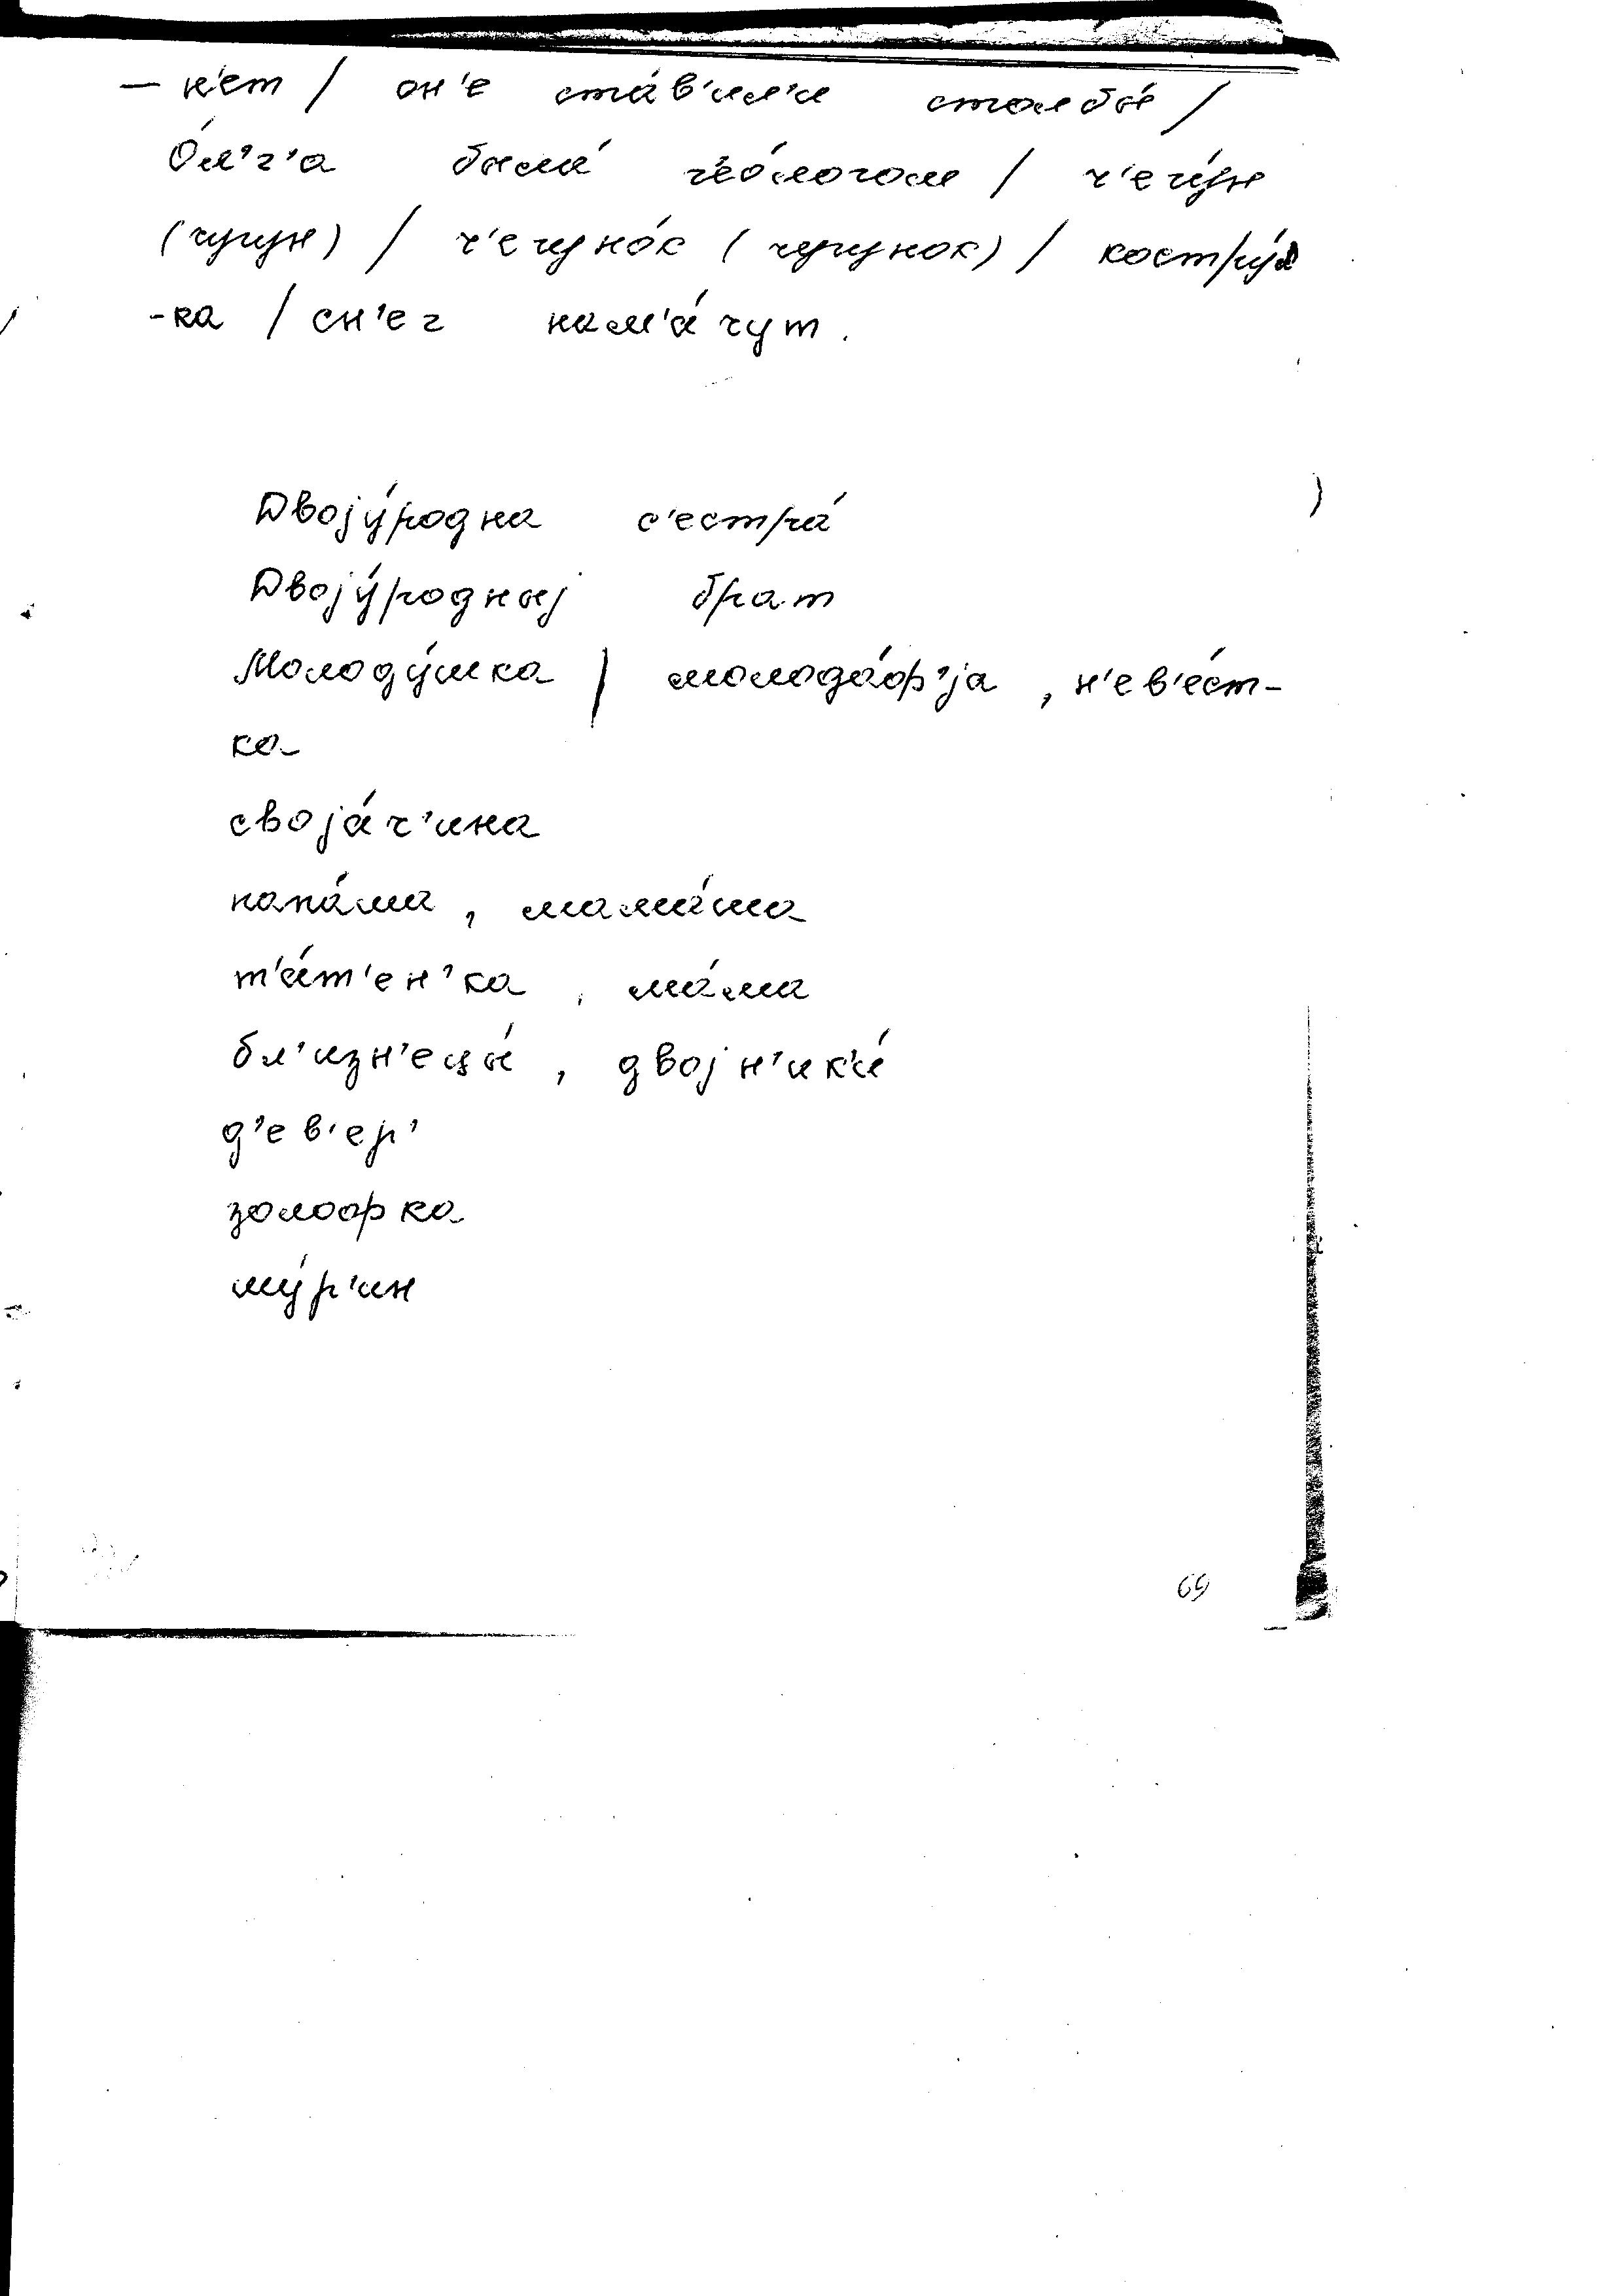 — к'ет / он'е ста́в'ил'и столбы́ /
О́л'г'а была́ г'ео́логом / ч'егу́н
(чугун) / ч'егуно́к (чугунок) / костру́л
-ка / сн'ег нам'а́чут.
Двоjу́родна с'естра́
Двоjу́родныj брат
Молоду́шка / молодо́ф'jа, н'ев'е́ст-
ка
своjа́ч'ина
папа́ша, мама́ша
т'а́т'ен'ка, ма́ма
бл'изн'ецы́, двоjн'ик'и́
д'ев'ер'
золофка
шу́р'ин
69